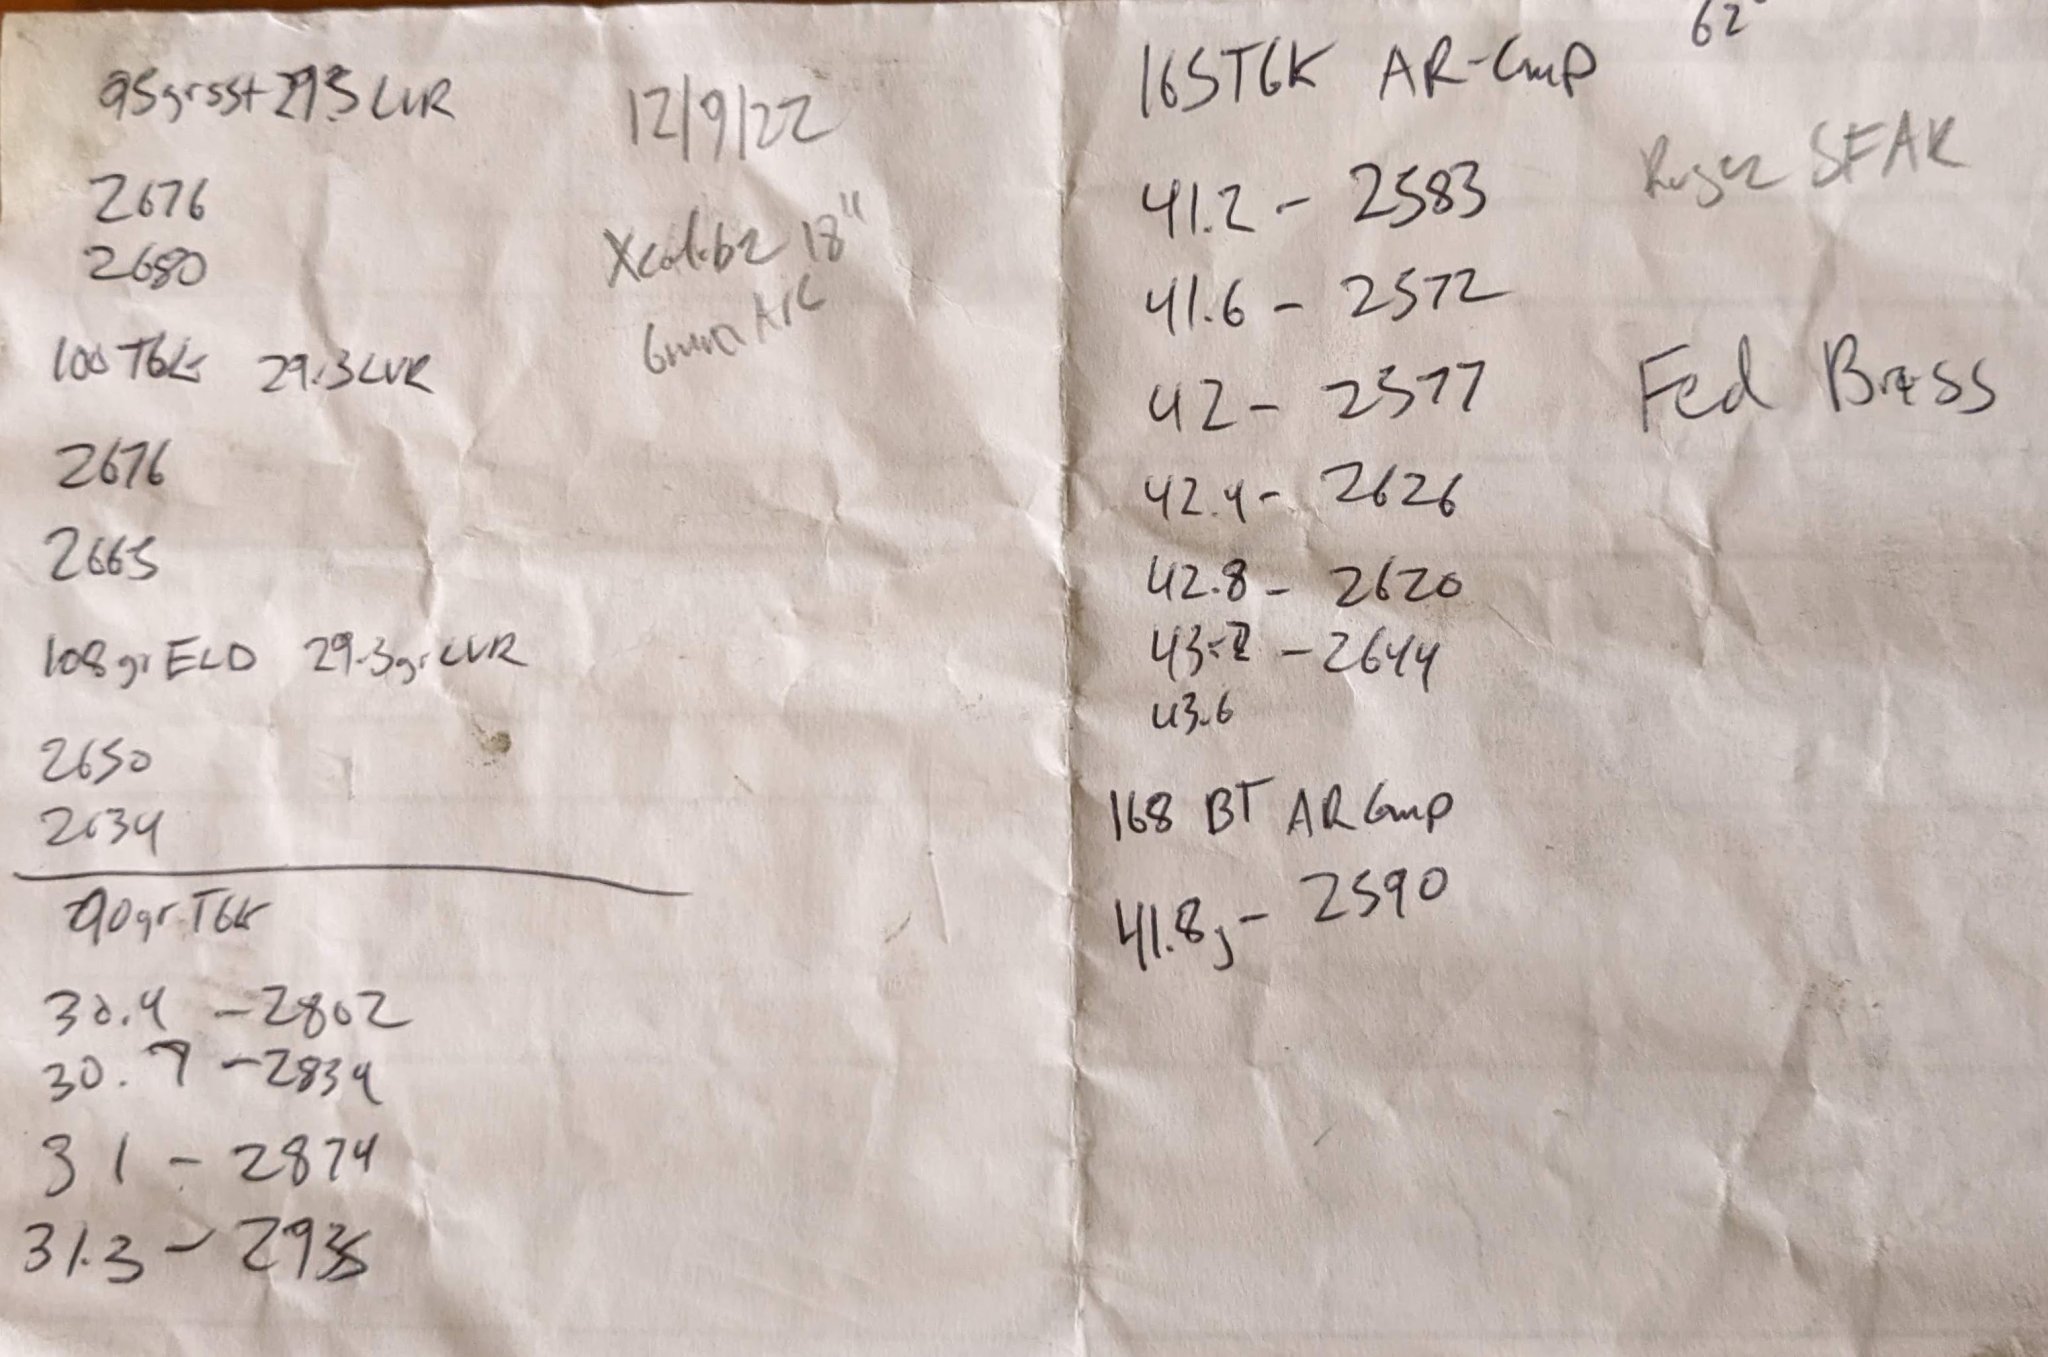 95grsst 29.3 LVR
2676
2680
100 TGK 29.3 LVR
2676
2665
108gr ELD 29.3gr LVR
2650
2634
90gr TGK
30.4 - 2802
30.7 - 2834
31 - 2874
31.3 - 2935
12/9/22
Xcaliber 18"
6mm ARC
62°
165 TGK AR-Comp
Ruger SFAR
41.2 - 2583
41.6 - 2572
42 - 2577
Fed Brass
42.4 - 2626
42.8 - 2620
43.2 - 2644
43.6
168 BT AR Comp
41.8g - 2590